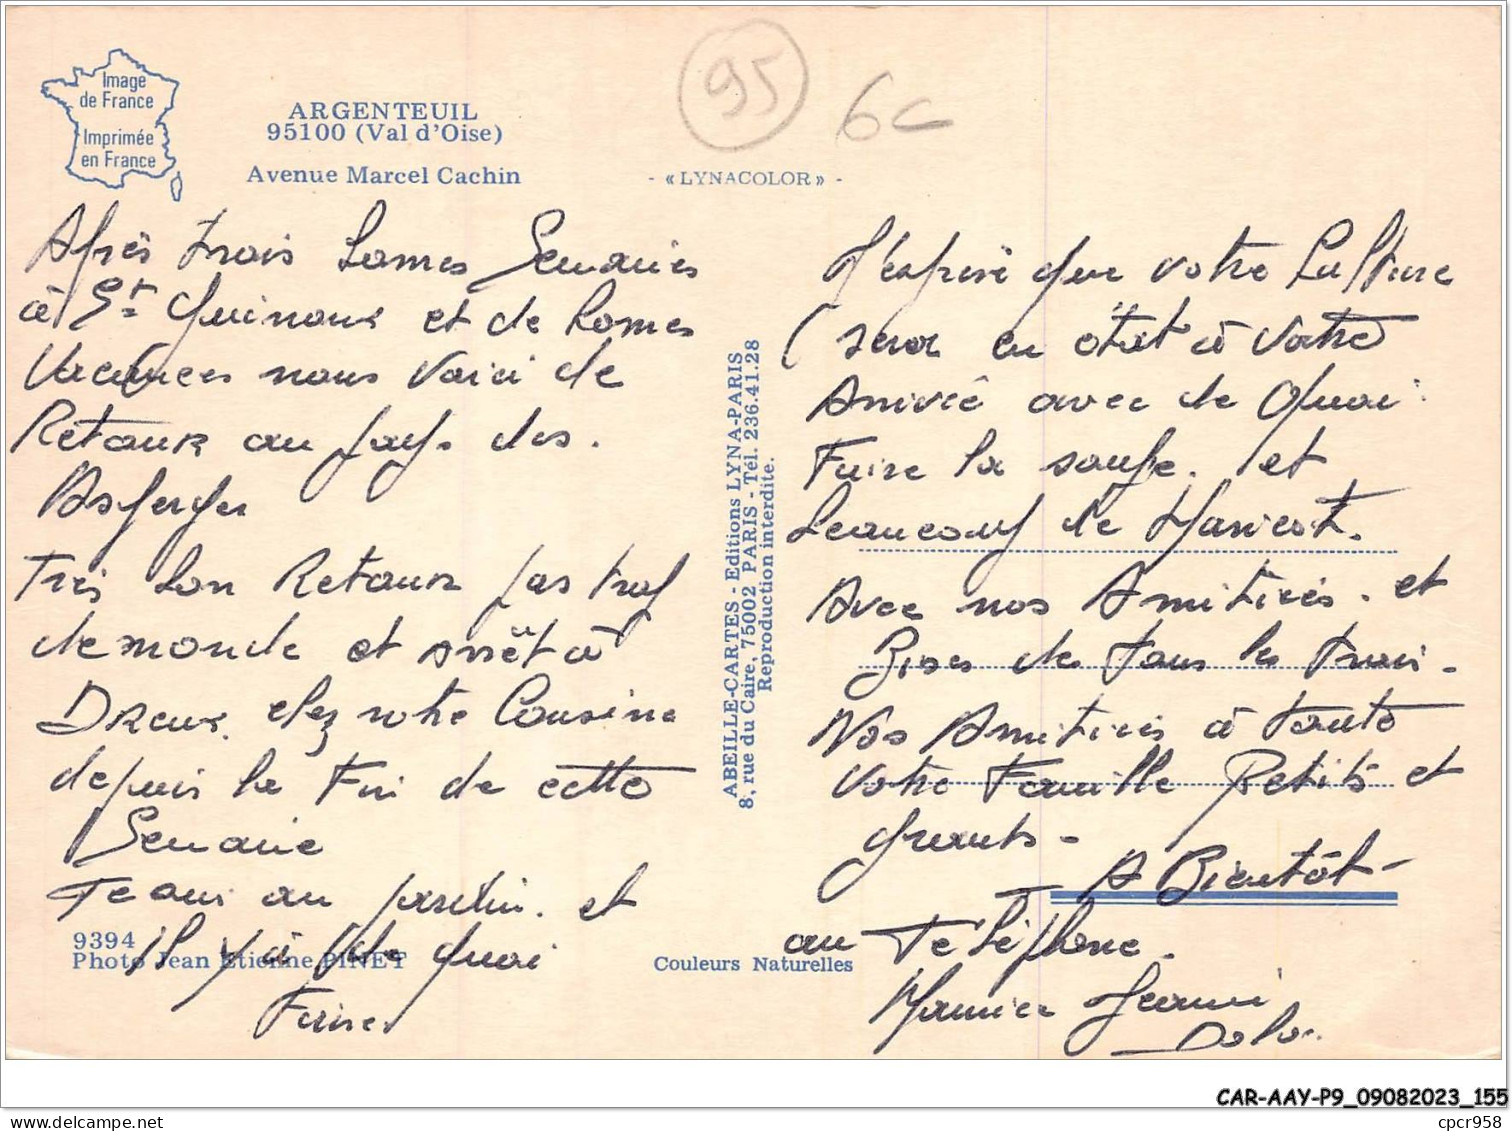 Image
de France
Imprimée
en France
ARGENTEUIL
95100 (Val d'Oise)
Avenue Marcel Cachin
- «LYNACOLOR» -
95
6c
Après trois bonnes Semaines
à St Quinoux et de bonnes
Vacances nous voici de
Retour au pays des
Asperges
Très bon Retour pas trop
de monde et arrêt à
Dreux chez notre Cousine
depuis la Fin de cette
Semaine
Je suis au jardin. et
il y a de quoi
Faire
9394
Photo Jean Etienne PINET
Couleurs Naturelles
ABEILLE-CARTES - Editions LYNA-PARIS
8, rue du Caire, 75002 PARIS - Tél. 236.41.28
Reproduction interdite.
J'espère que votre Culture
sera en état à votre
Arrivée avec de Quoi
Faire la soupe. et
beaucoup de Haricot.
Avec nos Amitiés. et
Bises de tous les trois -
Nos Amitiés à toute
votre Famille Petits et
grands -
A Bientôt -
au Téléphone.
Maurice Jeanine
CAR-AAY-P9_09082023_155
delcampe.net
cpcr958